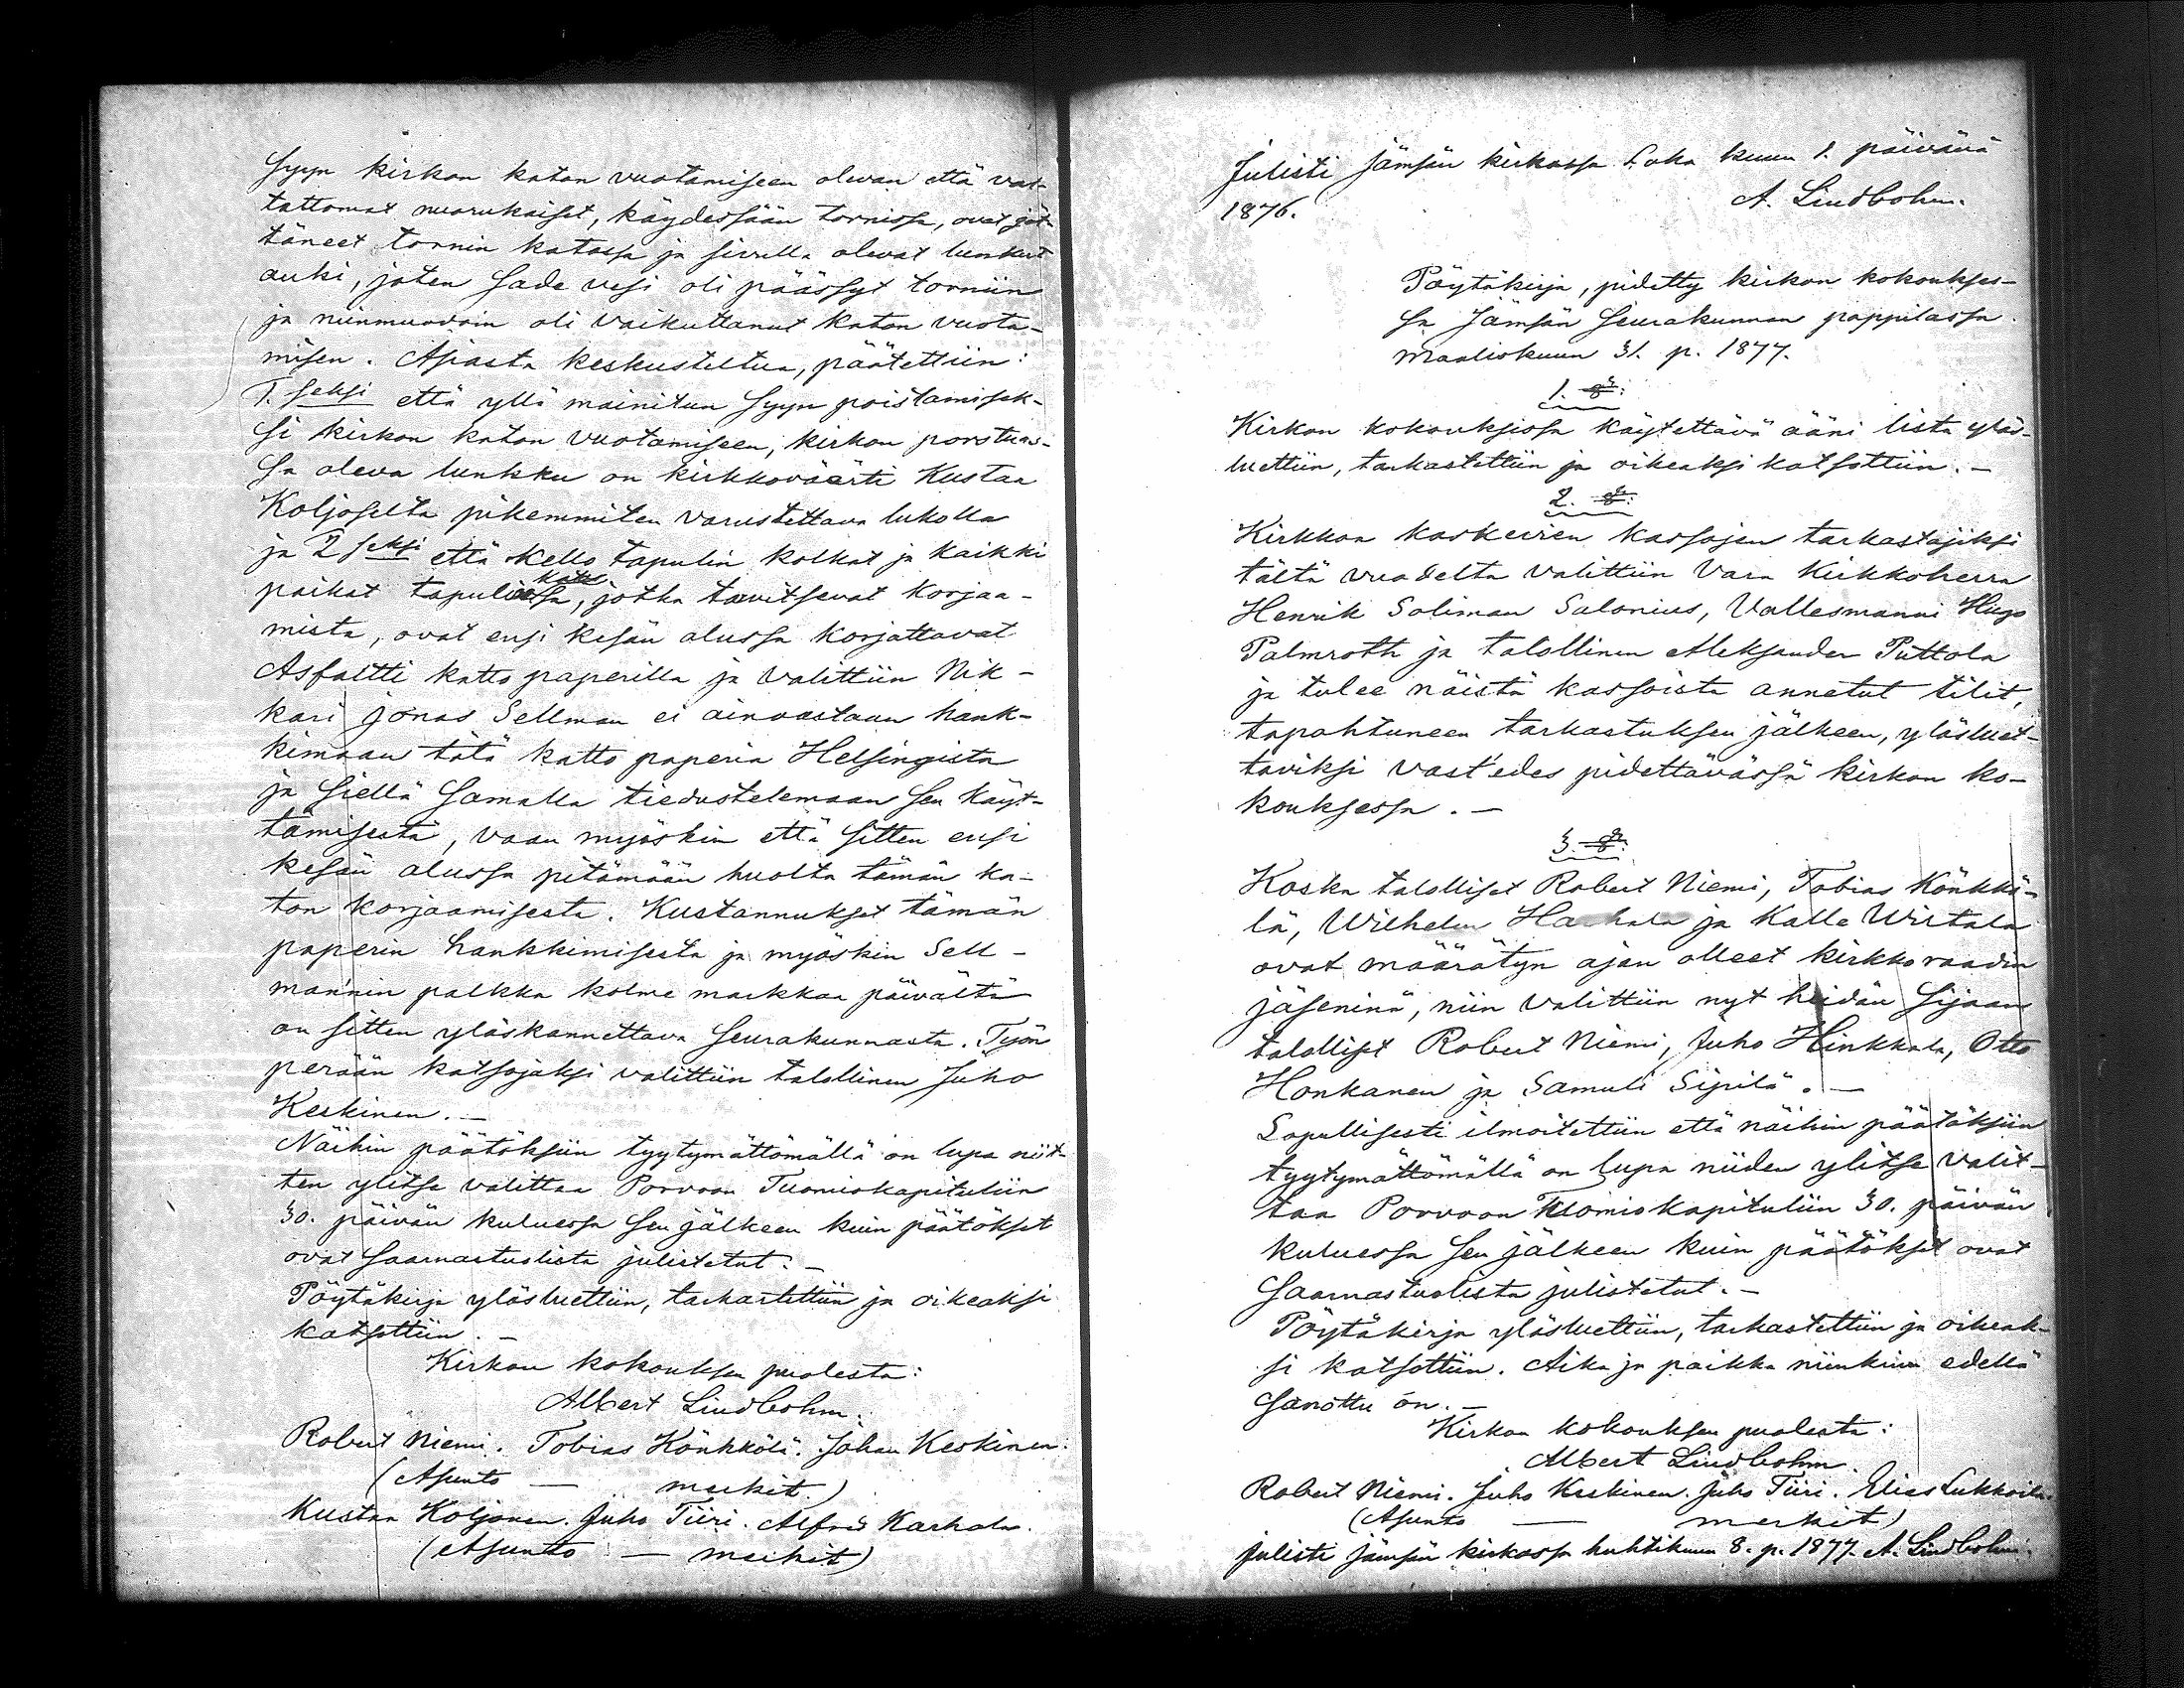 Syyn kirkon katon vuotamiseen olevan että vas-
tattomat nuorukaiset, käydessään tornissa, ovat jät-
täneet tornin katossa ja sivulla olevat lunkut
auki, joten Sade vesi oli päässyt torniin
ja niinmuodoin oli Vaikuttanut katon vuota-
misen. Asiasta keskusteltua, päätettiin:
1. seksi että yllä mainitun Syyn poistamisek-
si kirkon katon vuotamiseen, kirkon porstuas-
sa oleva lunkku on kirkkoväärti Kustaa
Koljoselta pikemmiten varustettava lukolla
ja 2 seksi että kello tapulin kolkat ja kaikki
paikat tapulin katossa, jotka tarvitsevat korjaa-
mista, ovat ensi kesän alussa korjattavat
Asfaltti katto paperilla ja Valittiin Nik-
kari Jonas Sellman ei ainoastaan hank-
kimaan tätä katto paperia Helsingista
ja Siellä Samalla tiedustelemaan Sen Käyt-
tämisestä, vaan myöskin että Sitten ensi
kesän alussa pitämään huolta tämän ka-
ton korjaamisesta. Kustannukset tämän
paperin hankkimisesta ja myöskin Sell-
mannin palkka kolme markkaa päivältä
on sitten yläskannettava Seurakunnasta. Työn
perään katsojaksi valittiin talollinen Juho
Keskinen. —
Näihin päätöksiin tyytymättömällä on lupa niit-
ten ylitse valittaa Porvoon Tuomiokapituliin
30. päivän kuluessa Sen jälkeen kuin päätökset
ovat Saarnastuolista julistetut. —
Pöytäkirja yläsluettiin, tarkastettiin ja oikeaksi
katsottiin. —
Kirkon kokouksen puolesta:
Albert Lindbohm.
Robert Niemi. Tobias Könkkölä. Johan Keskinen.
(Asunto — merkit.)
Kustaa Koljonen. Juho Tiiri. Alfred Karhala.
(Asunto — merkit)
Julisti Jämsän kirkossa Loka kuun 1. päivänä
1876. A. Lindbohm.
Pöytäkirja, pidetty kirkon kokoukses-
sa Jämsän Seurakunnan pappilassa
Maaliskuun 31. p. 1877.
1. §:
Kirkon kokouksissa käytettävä ääni lista yläs-
luettiin, tarkastettiin ja oikeaksi katsottiin. —
2. §:
Kirkkoa koskevien kassojen tarkastajiksi
tältä vuodelta valittiin Vara Kirkkoherra
Henrik Soliman Salonius, Vallesmanni Hugo
Palmroth ja talollinen Aleksander Puttola
ja tulee näistä kassoista annetut tilit,
tapahtuneen tarkastuksen jälkeen, yläsluet-
taviksi vast'edes pidettävässä kirkon ko-
kouksessa. —
3. §:
Koska talolliset Robert Niemi, Tobias Könkkö-
lä, Wilhelm ja Kalle Wirtala
ovat määrätyn ajan olleet kirkkoraadin
jäseninä, niin valittiin nyt heidän Sijaan
talolliset Robert Niemi, Juho Hinkkala, Otto
Honkanen ja Samuli Sipilä. —
Lopullisesti ilmoitettiin että näihin päätöksiin
tyytymättömällä on lupa niiden ylitse valit-
taa Porvoon Tuomiokapituliin 30. päivän
kuluessa Sen jälkeen kuin päätökset ovat
Saarnastuolista julistetut. —
Pöytäkirja yläsluettiin, tarkastettiin ja oikeak-
si katsottiin. Aika ja paikka niinkuin edellä
Sanottu on. —
Kirkon kokouksen puolesta:
Albert Lindbohm.
Robert Niemi. Juho Keskinen. Juho Tiiri. Elias Lukkoila.
(Asunto — merkit)
Julisti Jämsän kirkossa huhtikuun 8. p. 1877. A. Lindbohm.